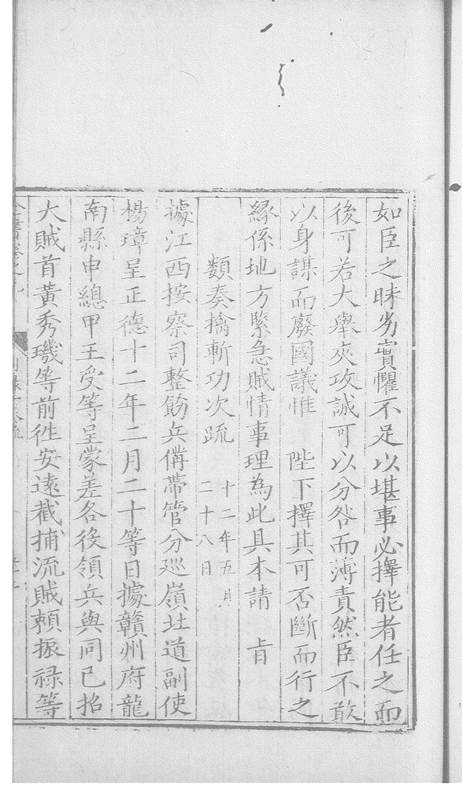 如臣之昧劣實懼不足以堪事必擇能者任之而
後可若大舉夾攻誠可以分咎而薄責然臣不敢
以身謀而廢國議惟　陛下擇其可否斷而行之
緣係地方緊急賊情事理為此具本請　旨
類奏擒斬功次疏
十二年五月
二十八日
據江西按察司整飭兵備帶管分巡嶺北道副使
楊璋呈正德十二年二月二十等日據贛州府龍
南縣申總甲王受等呈蒙差各役領兵與同已招
大賊首黃秀璣等前徃安遠截捕流賊賴振祿等